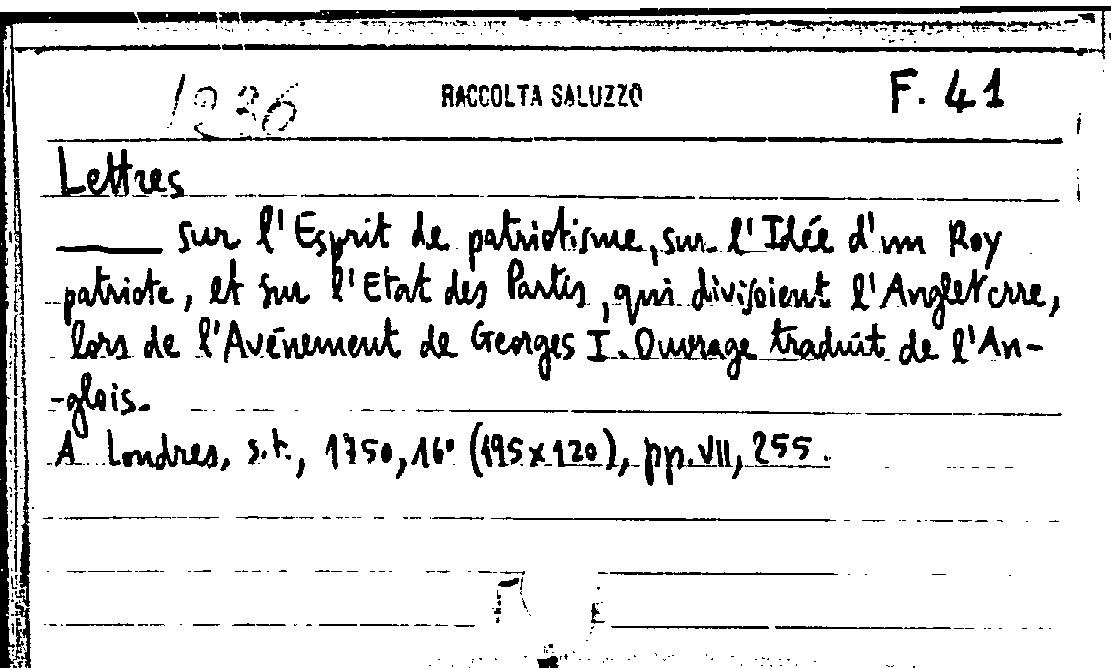 1236 RACCOLTA SALUZZO F. 41
Lettres
____ sur l'Esprit de patriotisme, sur l'Idée d'un Roy
patriote, et sur l'Etat des Partis, qui divisoient l'Angleterre,
lors de l'Avénement de Georges I. Ouvrage traduit de l'An-
-glois.
A Londres, s.t., 1750, 16° (195x120), pp. VII, 255.